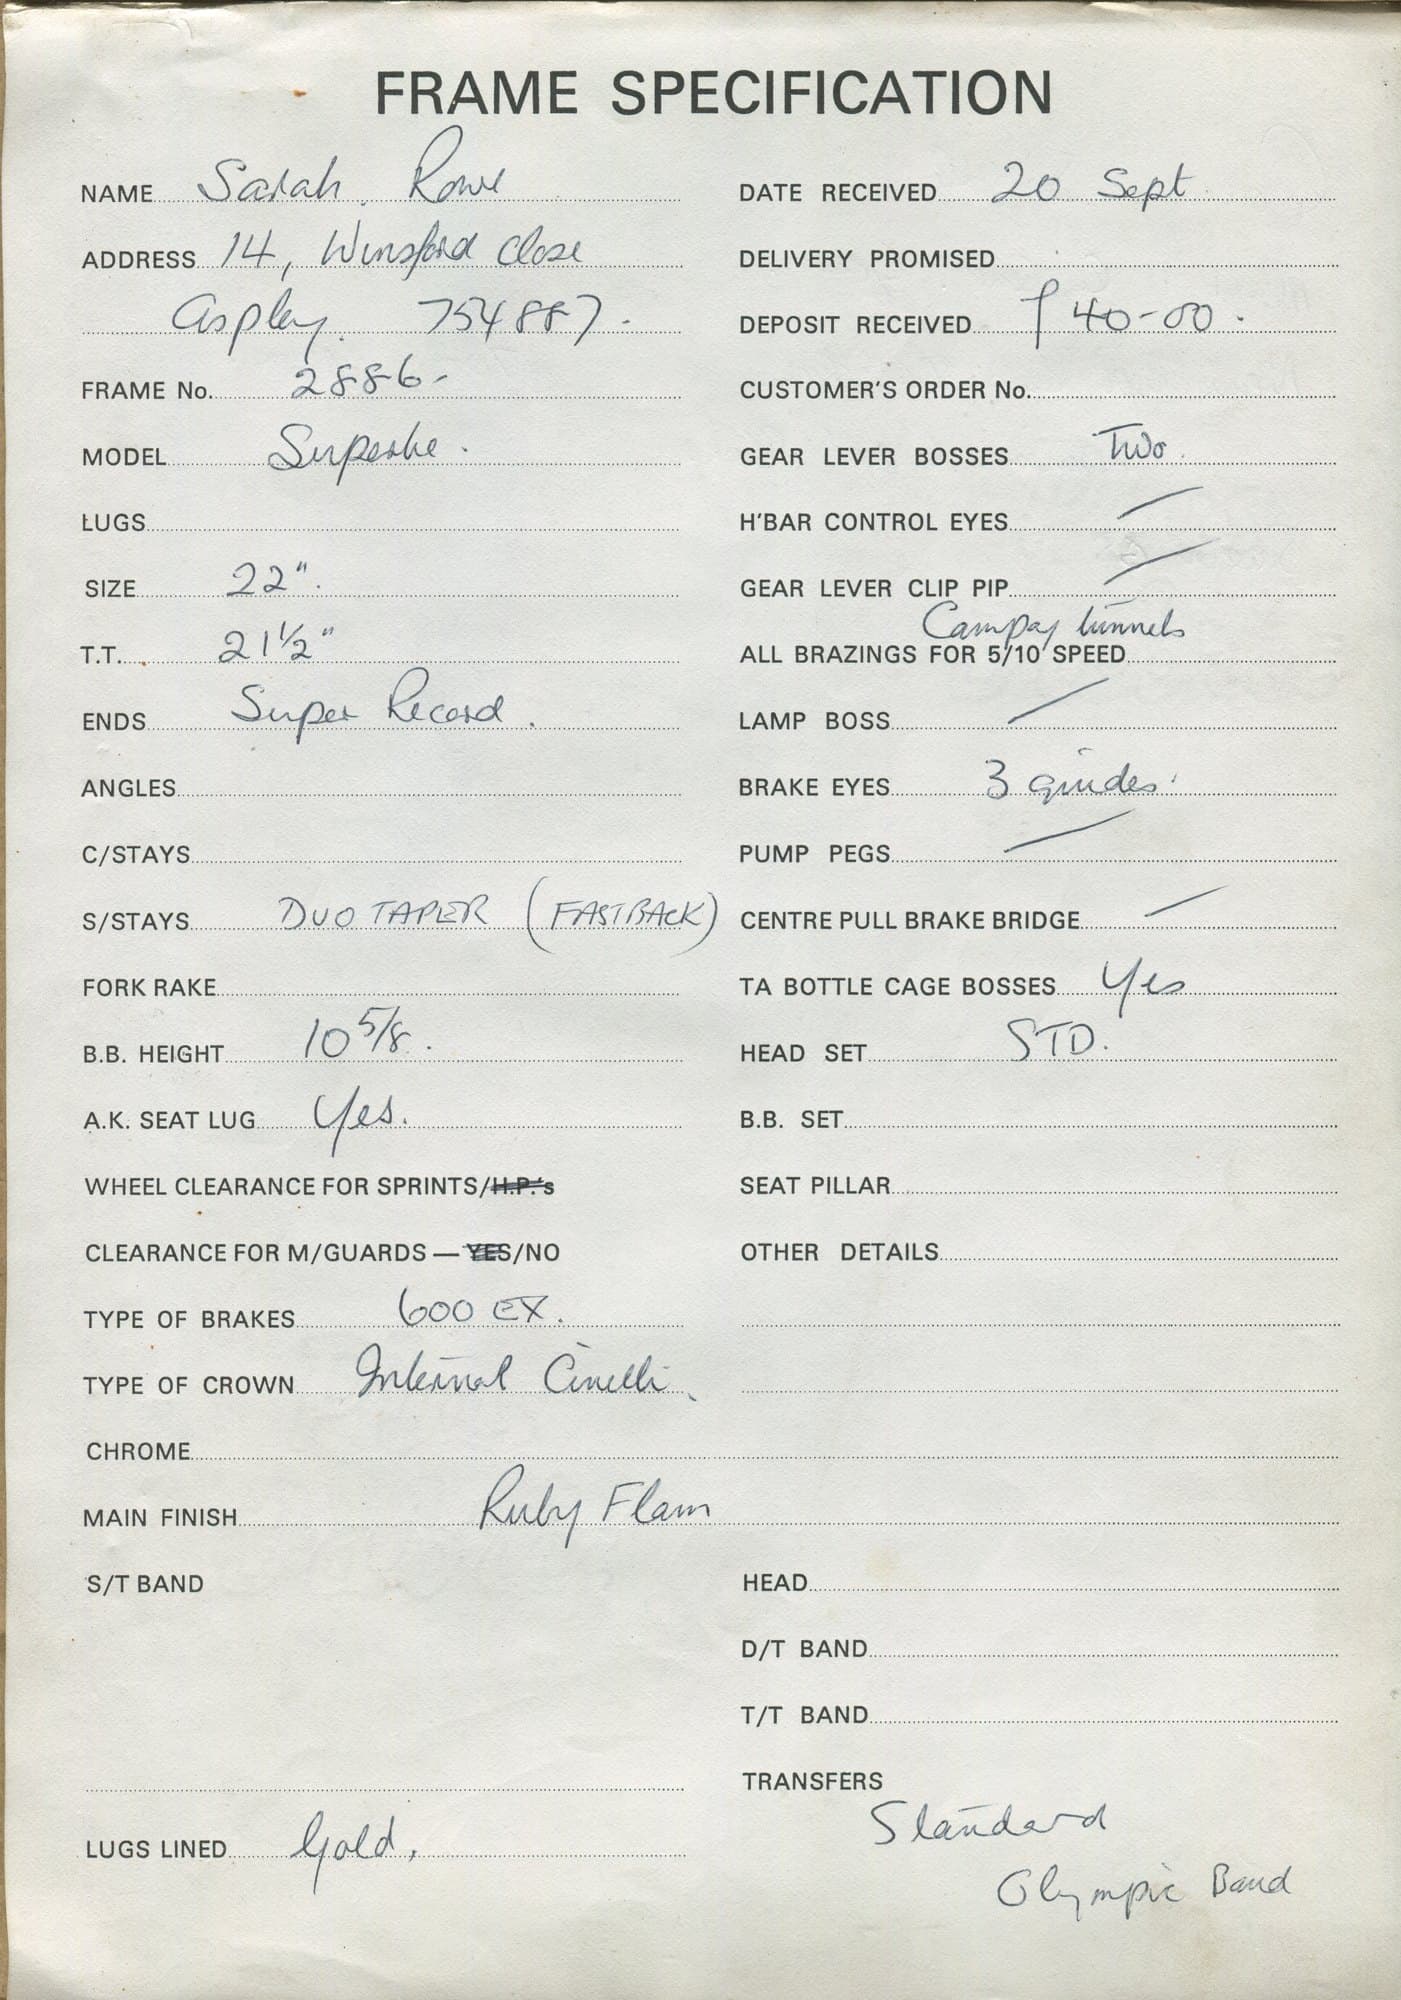 FRAME SPECIFICATION
NAME Sarah Rowe
ADDRESS 14, Winsford Close
Aspley. 754887.
FRAME No. 2886-
MODEL Superbe.
LUGS
SIZE 22".
T.T. 21 1/2"
ENDS Super Record.
ANGLES
C/STAYS
S/STAYS DUO TAPER (FASTBACK)
FORK RAKE
B.B. HEIGHT 10 5/8.
A.K. SEAT LUG Yes.
WHEEL CLEARANCE FOR SPRINTS/H.P.'s
CLEARANCE FOR M/GUARDS — YES/NO
TYPE OF BRAKES 600 EX.
TYPE OF CROWN Internal Cinelli.
CHROME
MAIN FINISH Ruby Flam
S/T BAND
LUGS LINED Gold.
DATE RECEIVED 20 Sept
DELIVERY PROMISED
DEPOSIT RECEIVED £40-00.
CUSTOMER'S ORDER No.
GEAR LEVER BOSSES Two.
H'BAR CONTROL EYES /
GEAR LEVER CLIP PIP /
Campag tunnels
ALL BRAZINGS FOR 5/10 SPEED
LAMP BOSS /
BRAKE EYES 3 guides.
PUMP PEGS /
CENTRE PULL BRAKE BRIDGE /
TA BOTTLE CAGE BOSSES Yes
HEAD SET STD.
B.B. SET
SEAT PILLAR
OTHER DETAILS
HEAD
D/T BAND
T/T BAND
TRANSFERS
Standard
Olympic Band